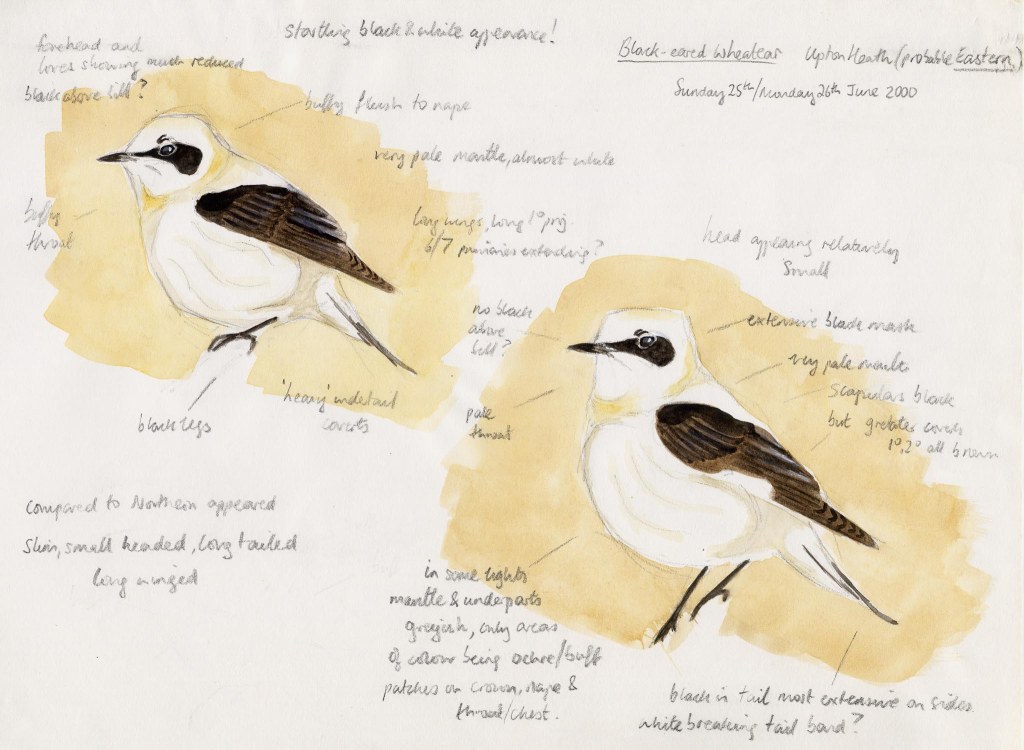 startling black & white appearance!
Black-eared Wheatear Upton Heath (probable Eastern)
Sunday 25th/Monday 26th June 2000
forehead and
lores showing much reduced
black above bill?
buffy flush to nape
very pale mantle, almost white
buffy
throat
long wings, long 1° proj.
6/7 primaries extending?
head appearing relatively
small
no black
above
bill?
extensive black mask
very pale mantle
scapulars black
but greater coverts
1°, 2° all brown
pale
throat
black legs
'heavy' undertail
coverts
compared to Northern appeared
slim, small headed, long tailed
long winged
in some lights
mantle & underparts
greyish, only areas
of colour being ochre/buff
patches on crown, nape &
throat/chest.
black in tail most extensive on sides
white breaking tail band?